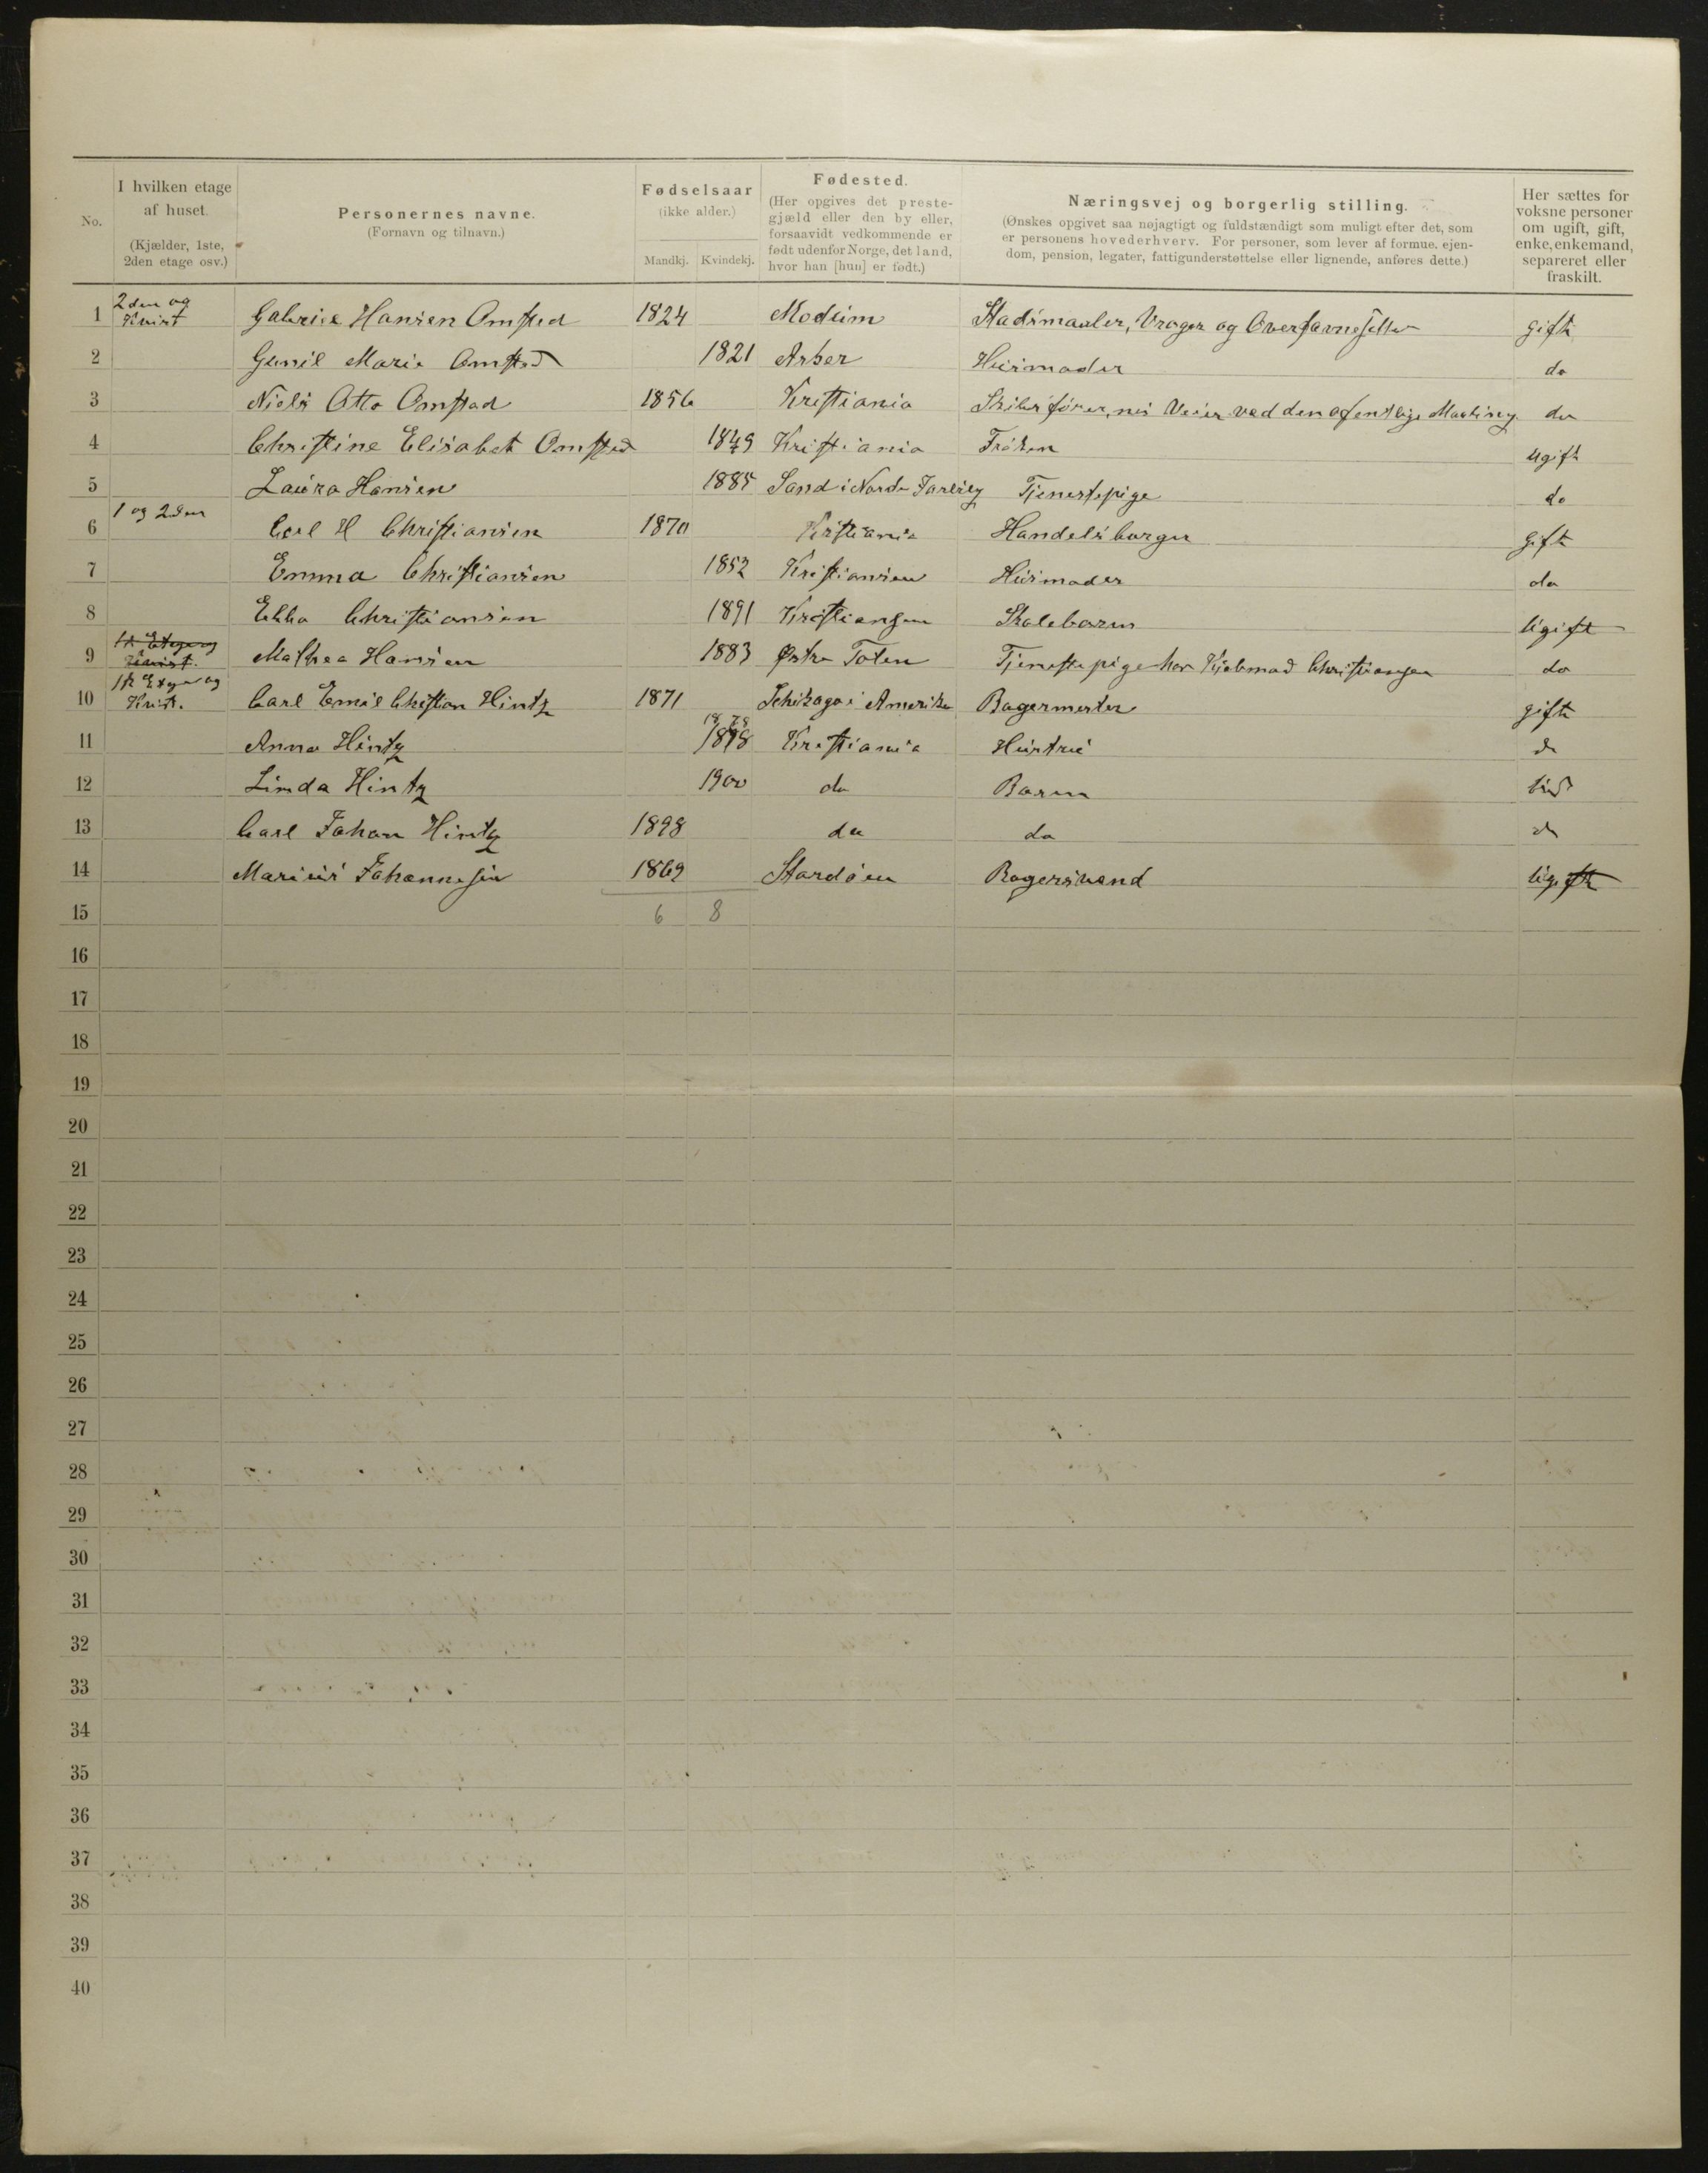 No.
I hvilken etage
af huset.
(Kjælder, 1ste,
2den etage osv.)
Personernes navne.
(Fornavn og tilnavn.)
Fødselsaar
(ikke alder.)
Mandkj. Kvindekj.
Fødested.
(Her opgives det preste-
gjæld eller den by eller,
forsaavidt vedkommende er
født udenfor Norge, det land,
hvor han [hun] er født.)
Næringsvej og borgerlig stilling.
(Ønskes opgivet saa nøjagtigt og fuldstændigt som muligt efter det, som
er personens hovederhverv. For personer, som lever af formue, ejen-
dom, pension, legater, fattigunderstøttelse eller lignende, anføres dette.)
Her sættes for
voksne personer
om ugift, gift,
enke, enkemand,
separeret eller
fraskilt.
2den og
Kvist
1 Gabriel Hansen Omsted 1824 Modum Stadsmaaler, Vrager og gift
2 Gunil Marie Omsted 1821 Asker Husmoder do
3 Niels Otto Omstad 1856 Kristiania ved den do
4 Christine Elisabet Omsted 1849 Kristiania Frøken ugift
5 Laura Hansen 1885 Sand i Nordre Tjenestepige do
1 og 2den
6 Carl H Christiansen 1870 Kristiania Handelsborger gift
7 Emma Christiansen 1852 Husmoder do
8 Ebba Christiansen 1891 Skolebarn Ugift
1ste Etage og
Kvist.
9 Mathea Hansen 1883 Østre Toten Tjenestepige hos Kjøbmad Christiansen do
1ste Etage og
Kvist.
10 Carl Emil Christian Hintz 1871 Schikago i Amerika Bagermester gift
1878
11 Anna Hintz 1878 Kristiania Hustru do
12 Linda Hintz 1900 do Barn
13 Carl Johan Hintz 1898 do do do
14 Marius Johannesen 1869 Bagersvend Ugift
15 6 8
16
17
18
19
20
21
22
23
24
25
26
27
28
29
30
31
32
33
34
35
36
37
38
39
40